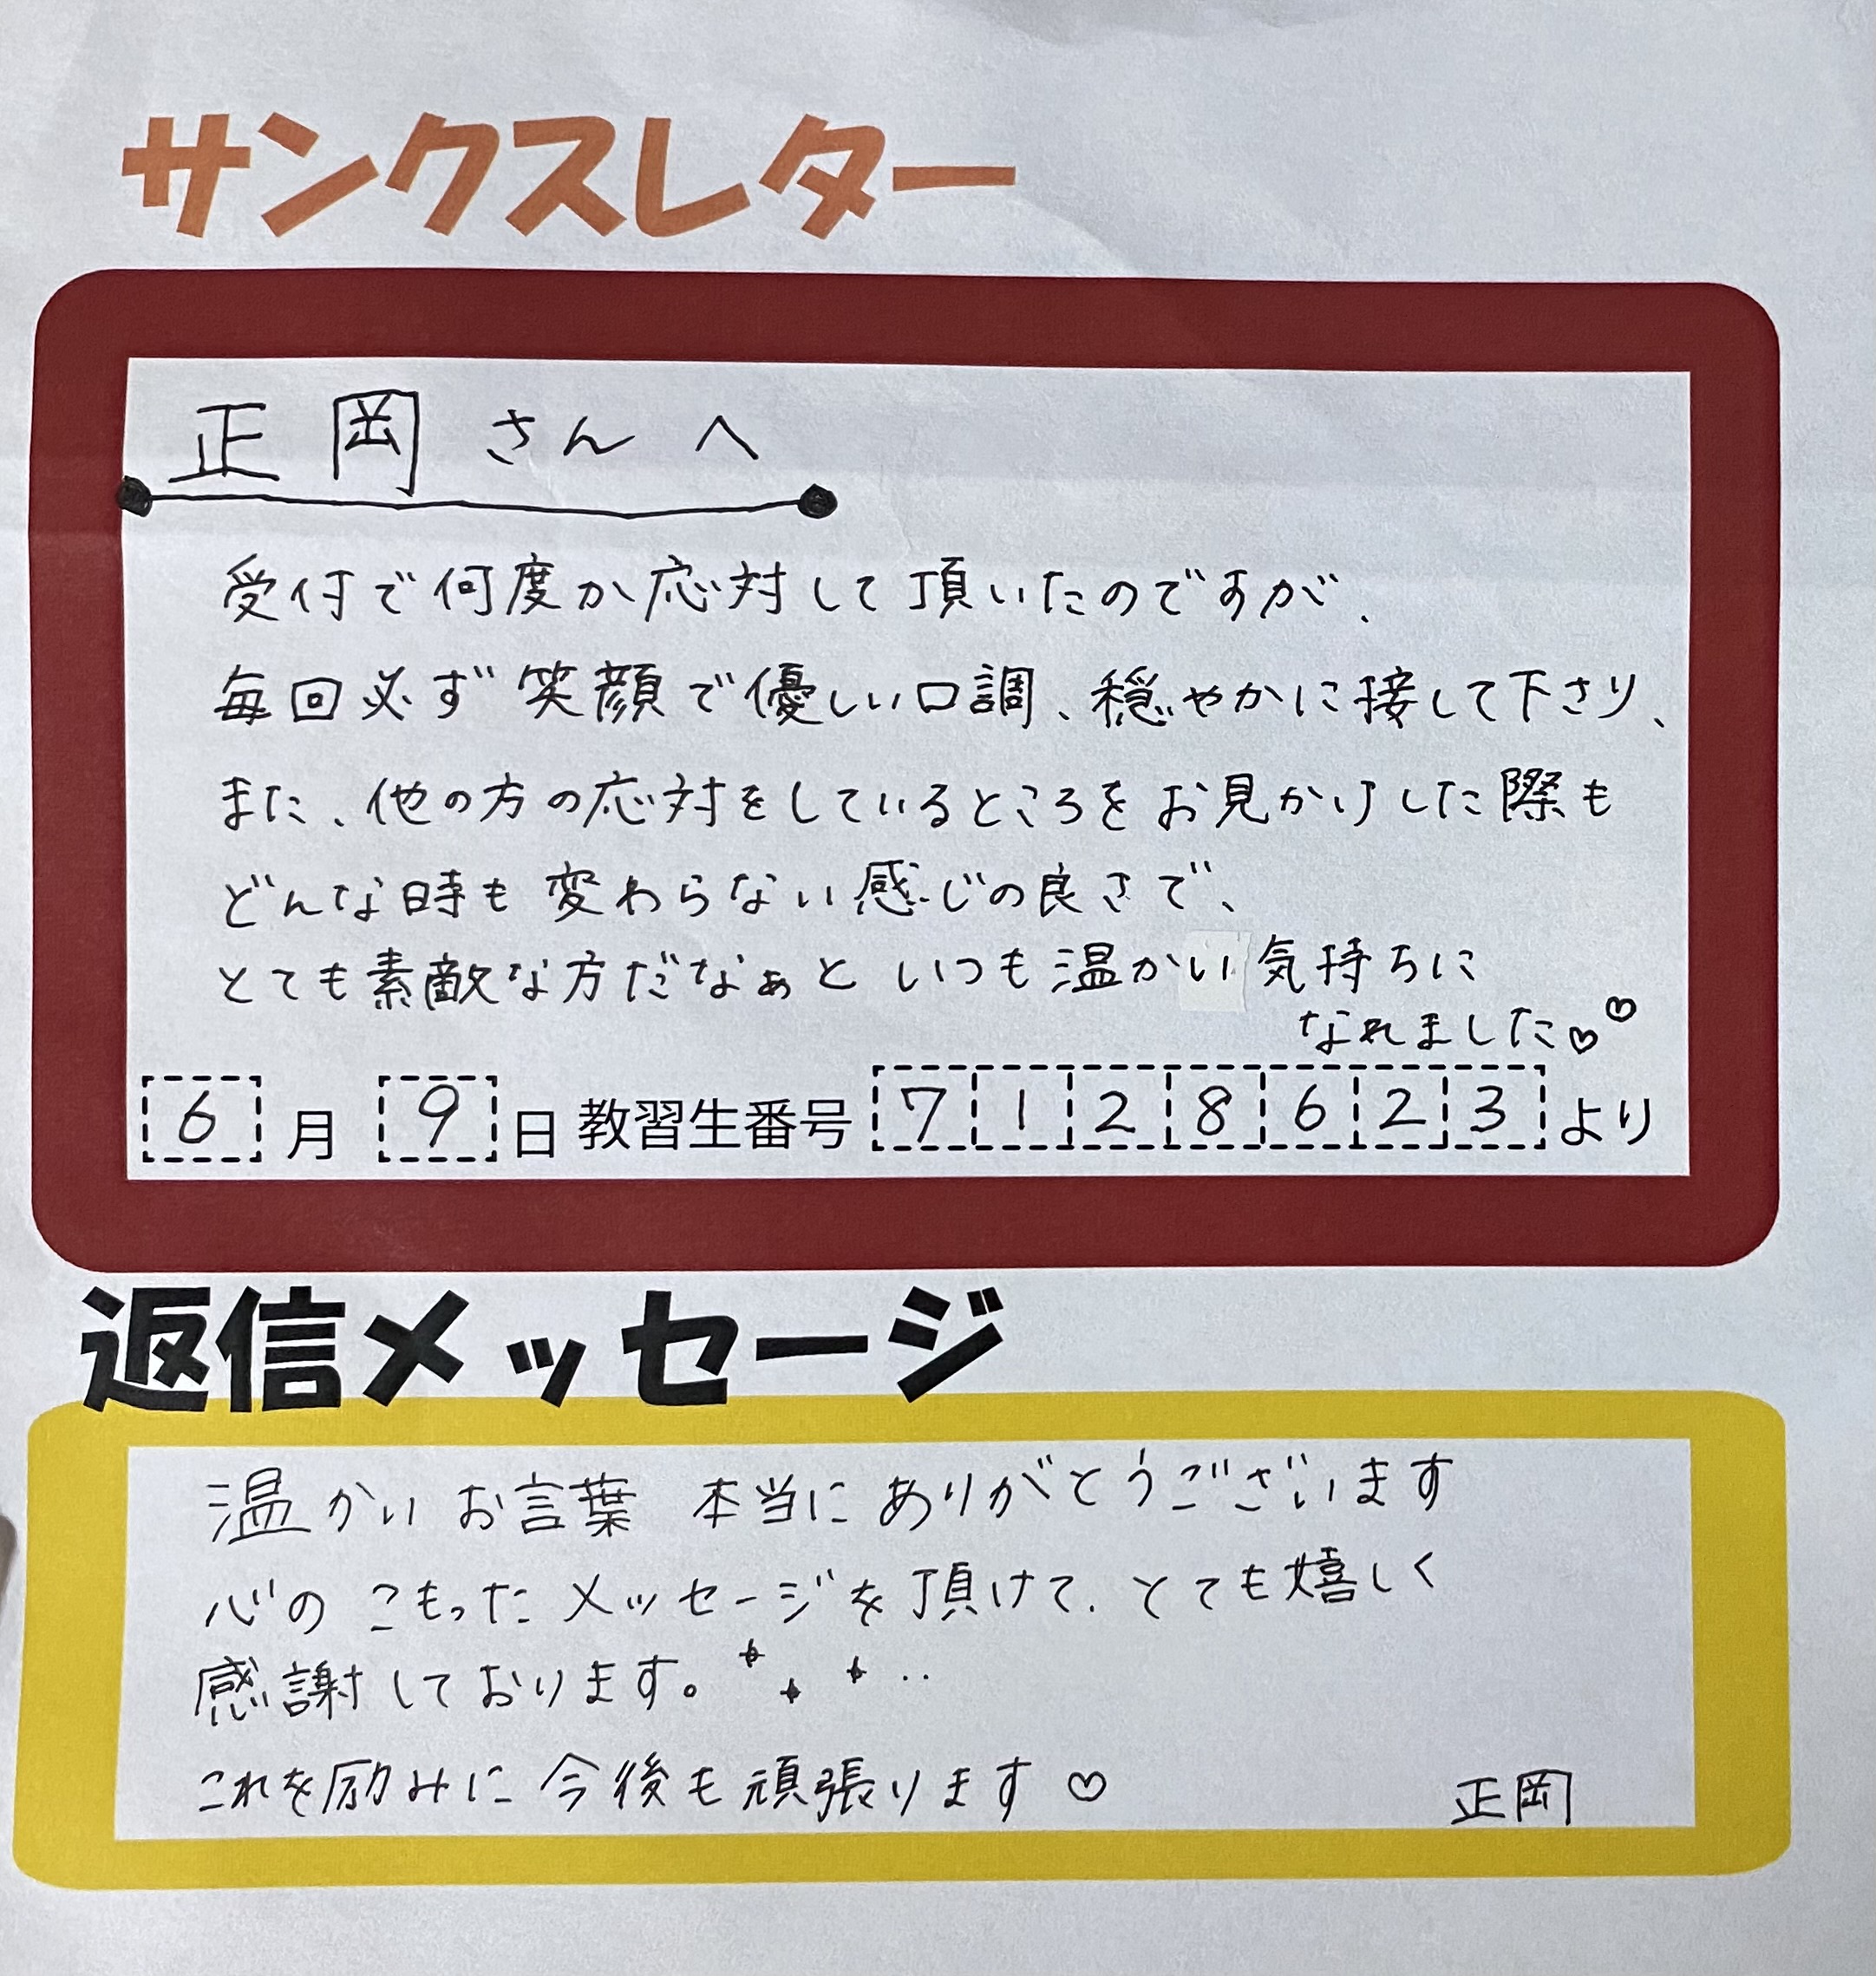 サンクスレター
正岡さんへ
受付で何度か応対して頂いたのですが、
毎回必ず笑顔で優しい口調、穏やかに接して下さり、
また、他の方の応対をしているところをお見かけした際も
どんな時も変わらない感じの良さで、
とても素敵な方だなぁと いつも温かい気持ちに
なれました♡♡
6月 9日 教習生番号 7128623 より
返信メッセージ
温かいお言葉 本当にありがとうございます
心のこもったメッセージを頂けて、とても嬉しく
感謝しております。
これを励みに今後も頑張ります♡ 正岡